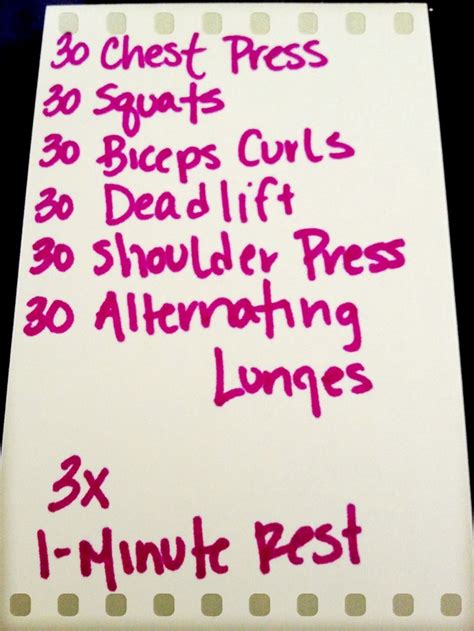 30 Chest Press
30 Squats
30 Biceps Curls
30 Deadlift
30 Shoulder Press
30 Alternating
Lunges
3x
1-Minute Rest